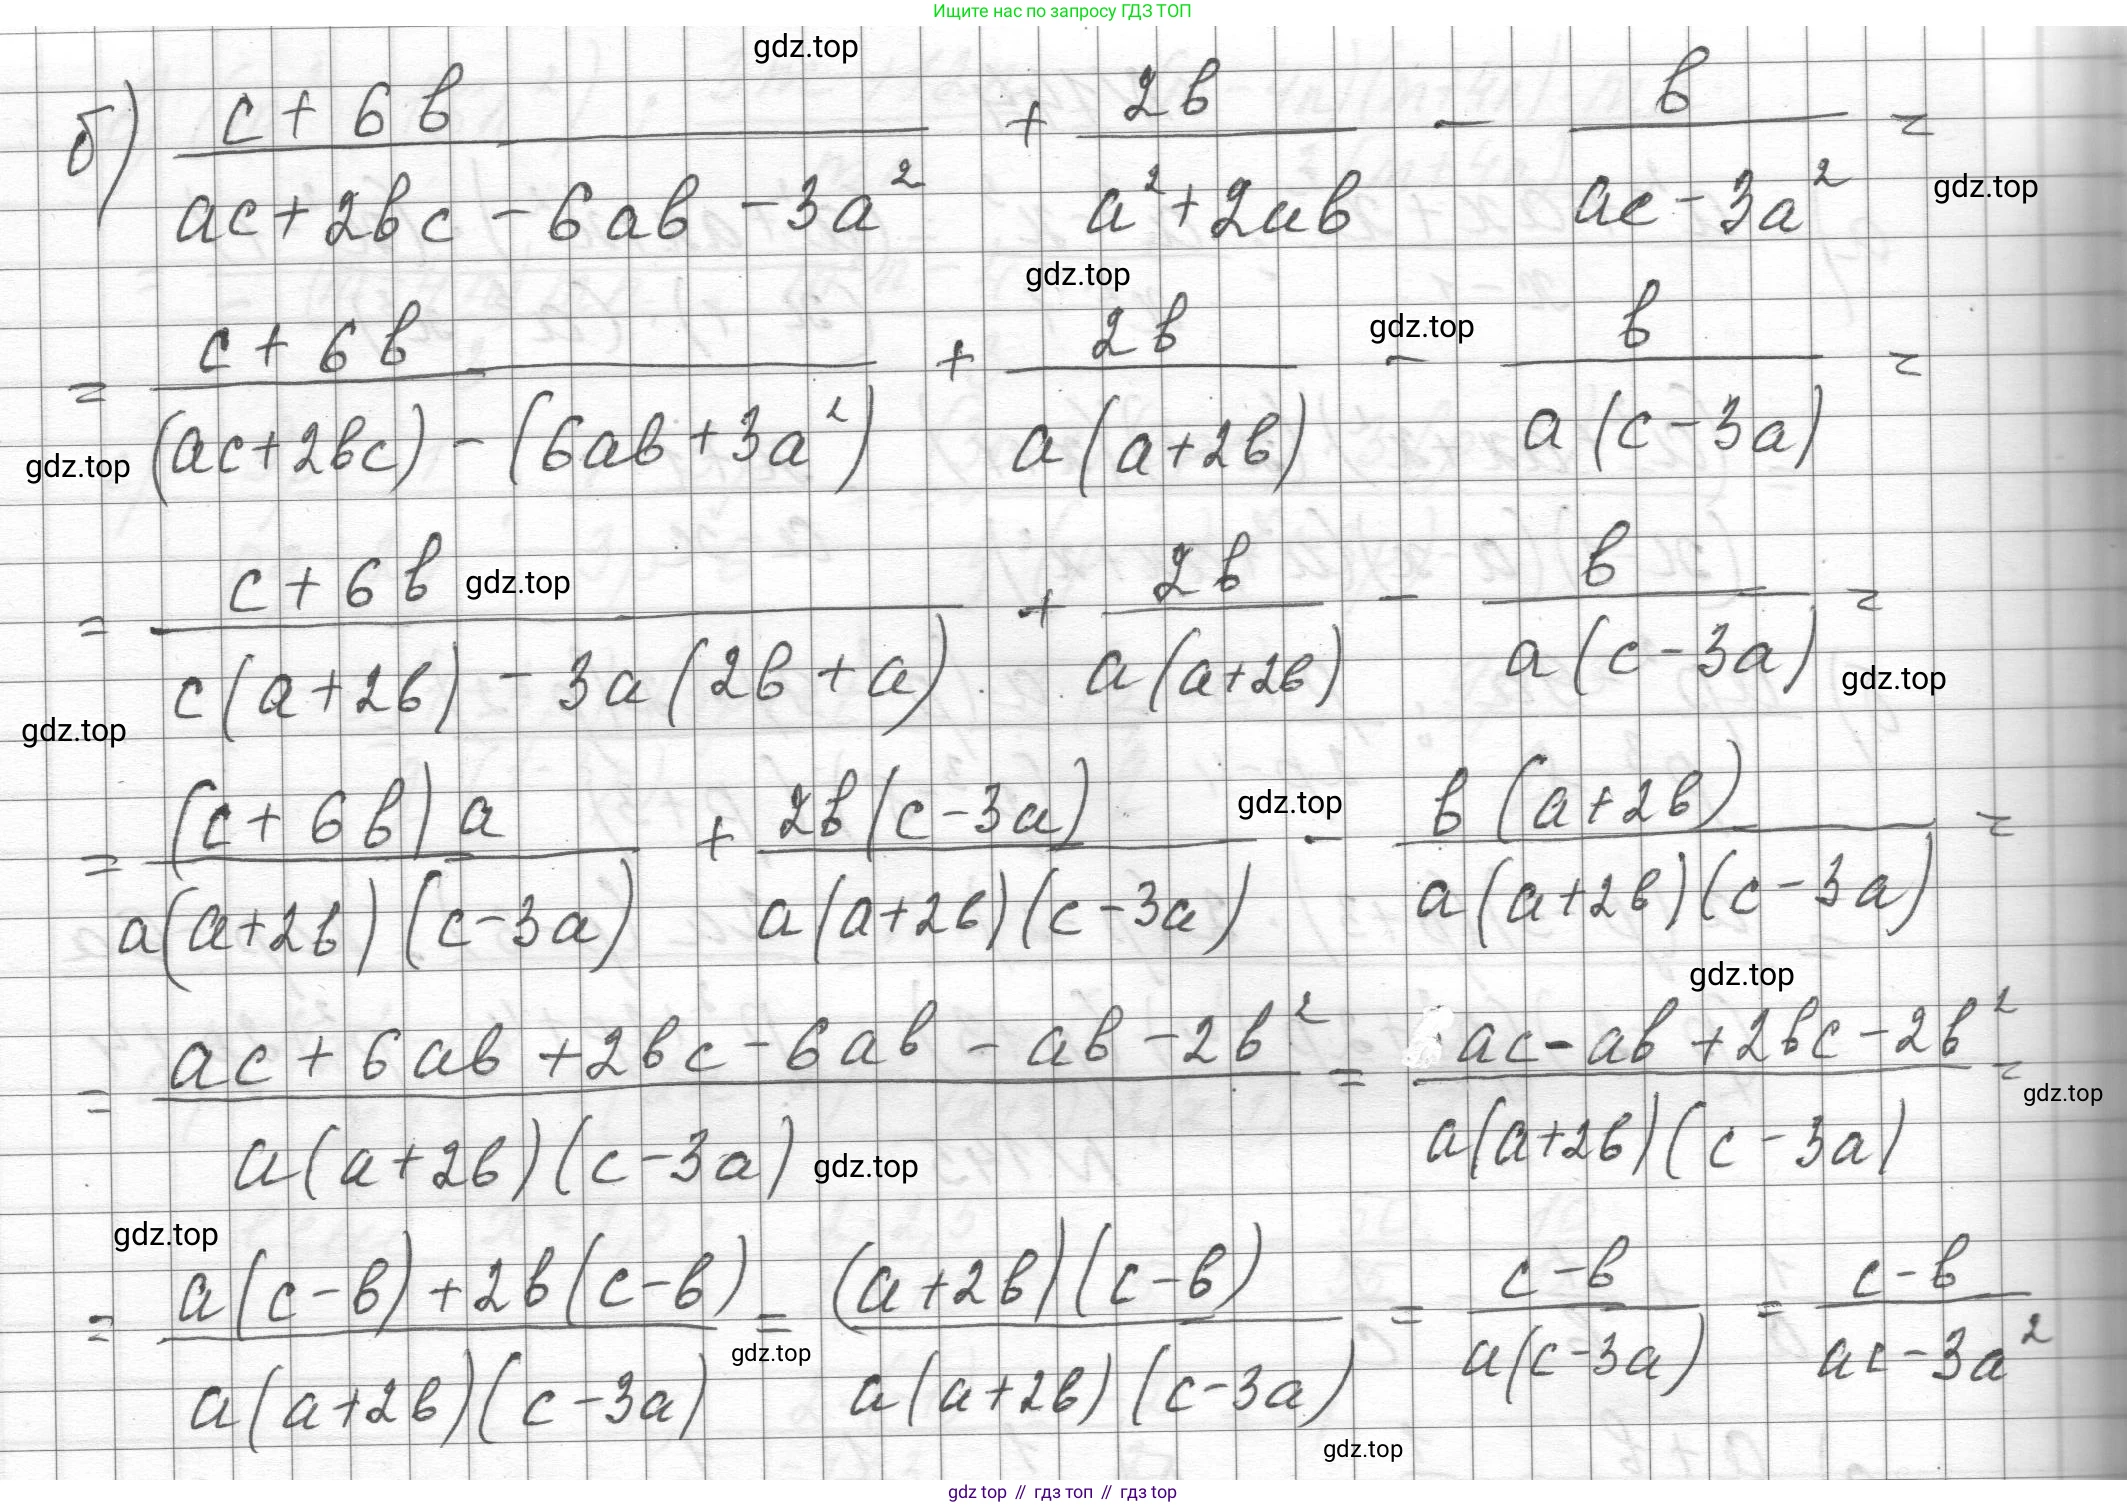 Ищите нас по запросу ГДЗ ТОП
gdz.top
б) (c + 6b)/(ac + 2bc - 6ab - 3a²) + 2b/(a² + 2ab) - b/(ac - 3a²) =
gdz.top
gdz.top
gdz.top
= (c + 6b)/((ac + 2bc) - (6ab + 3a²)) + 2b/(a(a + 2b)) - b/(a(c - 3a)) =
gdz.top
gdz.top
= (c + 6b)/(c(a + 2b) - 3a(2b + a)) + 2b/(a(a + 2b)) - b/(a(c - 3a)) =
gdz.top
gdz.top
gdz.top
= ((c + 6b)a)/(a(a + 2b)(c - 3a)) + (2b(c - 3a))/(a(a + 2b)(c - 3a)) - (b(a + 2b))/(a(a + 2b)(c - 3a)) =
gdz.top
= (ac + 6ab + 2bc - 6ab - ab - 2b²)/(a(a + 2b)(c - 3a)) = (ac - ab + 2bc - 2b²)/(a(a + 2b)(c - 3a)) =
gdz.top
gdz.top
gdz.top
= (a(c - b) + 2b(c - b))/(a(a + 2b)(c - 3a)) = ((a + 2b)(c - b))/(a(a + 2b)(c - 3a)) = (c - b)/(a(c - 3a)) = (c - b)/(ac - 3a²)
gdz.top
gdz.top
gdz top // гдз топ // гдз top